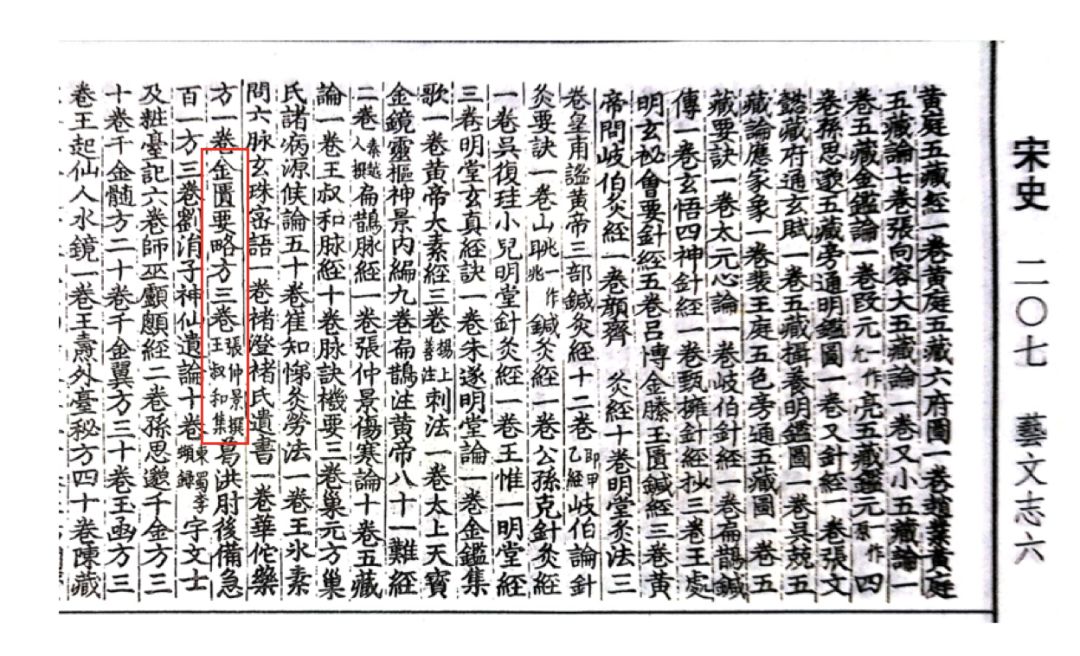 宋史 二〇七 藝文志六
黃庭五藏經一卷黃庭五藏六府圖一卷趙業黃庭
五藏論七卷張向容大五藏論一卷又小五藏論一
卷五藏金鑑論一卷段元一作允亮五藏鑑元一作原四
卷孫思邈五藏旁通明鑑圖一卷又針經一卷張文
懿藏府通玄賦一卷五藏攝養明鑑圖一卷吳兢五
藏論應家象一卷裴王庭五色旁通五藏圖一卷五
藏要訣一卷太元心論一卷岐伯針經一卷扁鵲鍼
傳一卷玄悟四神針經一卷甄擁針經抄三卷王處
明玄祕會要針經五卷呂博金縢玉匱鍼經三卷黃
帝問岐伯灸經一卷顏齊灸經十卷明堂灸法三
卷皇甫謐黃帝三部鍼灸經十二卷即甲乙經岐伯論針
灸要訣一卷山眺一作兆鍼灸經一卷公孫克針灸經
一卷吳復珪小兒明堂針灸經一卷王惟一明堂經
三卷明堂玄真經訣一卷朱遂明堂論一卷金鑑集
歌一卷黃帝大素經三卷楊上善注刺法一卷太上天寶
金鏡靈樞神景內編九卷扁鵲注黃帝八十一難經
二卷秦越人撰扁鵲脉經一卷張仲景傷寒論十卷五藏
論一卷王叔和脉經十卷脉訣機要三卷巢元方巢
氏諸病源候論五十卷崔知悌灸勞法一卷王氷素
問六脉玄珠密語一卷褚澄褚氏遺書一卷華佗藥
方一卷金匱要略方三卷張仲景撰王叔和集葛洪肘後備急
百一方三卷劉涓子神仙遺論十卷東蜀李頻錄宇文士
及粧臺記六卷師巫顱顖經二卷孫思邈千金方三
十卷千金髓方二十卷千金翼方三十卷玉函方三
卷王起仙人水鏡一卷王燾外臺秘方四十卷陳藏